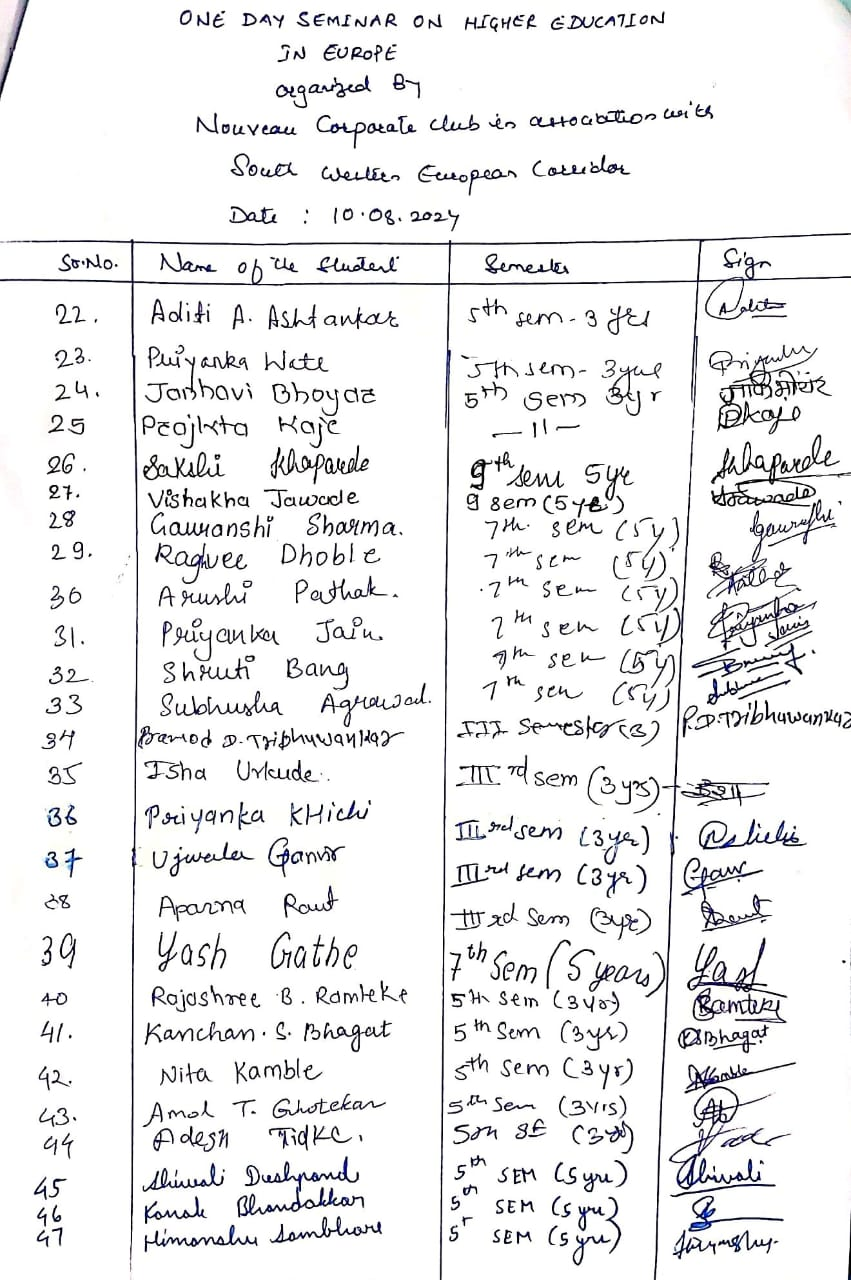 ONE DAY SEMINAR ON HIGHER EDUCATION
IN EUROPE
organized By
Nouveau Corporate club in association with
South Western European Corridor
Date : 10.08.2024
Sr.No. Name of the Student Semester Sign
22. Aditi A. Ashtankar 5th sem - 3 yrs
23. Priyanka Wate 5th sem - 3 year Priyanka
24. Janhavi Bhoyar 5th Sem 3yr
25 Prajkta Kaje — 11 — Pkaje
26. Sakshi Khaparde 9th sem 5yr Skhaparde
27. Vishakha Jawade 9 sem (5yr) Jawade
28 Gauranshi Sharma. 7th sem (5y)
29. Ragvee Dhoble 7th sem (5y)
30 Arushi Pathak. 7th sem (5y)
31. Priyanka Jain 7th sem (5y) Priyanka Jain
32 Shruti Bang 7th sem (5y)
33 Subhusha Agrawal. 7th sem (5y)
34 Pramod D. Tribhuwankar III Semester (3) P.D.Tribhuwankar
35 Isha Urkude. III rd sem (3 yrs)
36 Priyanka KHichi III rd sem (3yr)
37 Ujwala Ganvir III rd sem (3yr)
38 Aparna Raut III rd Sem (3yr) Raut
39 Yash Gathe 7th Sem (5 years) Yash
40 Rajashree B. Ramteke 5th Sem (3Yrs) Ramteke
41. Kanchan. S. Bhagat 5th Sem (3yrs) KSBhagat
42. Nita Kamble 5th Sem (3yr) NKamble
43. Amol T. Ghotekar 5th Sem (3Yrs)
44 Adesh (3y)
45 Shivali Deshpand 5th SEM (5 yrs) Shivali
46 Kanak Bhandakkar 5th SEM (5 yrs)
47 Himanshu Sambhare 5t SEM (5 yrs)